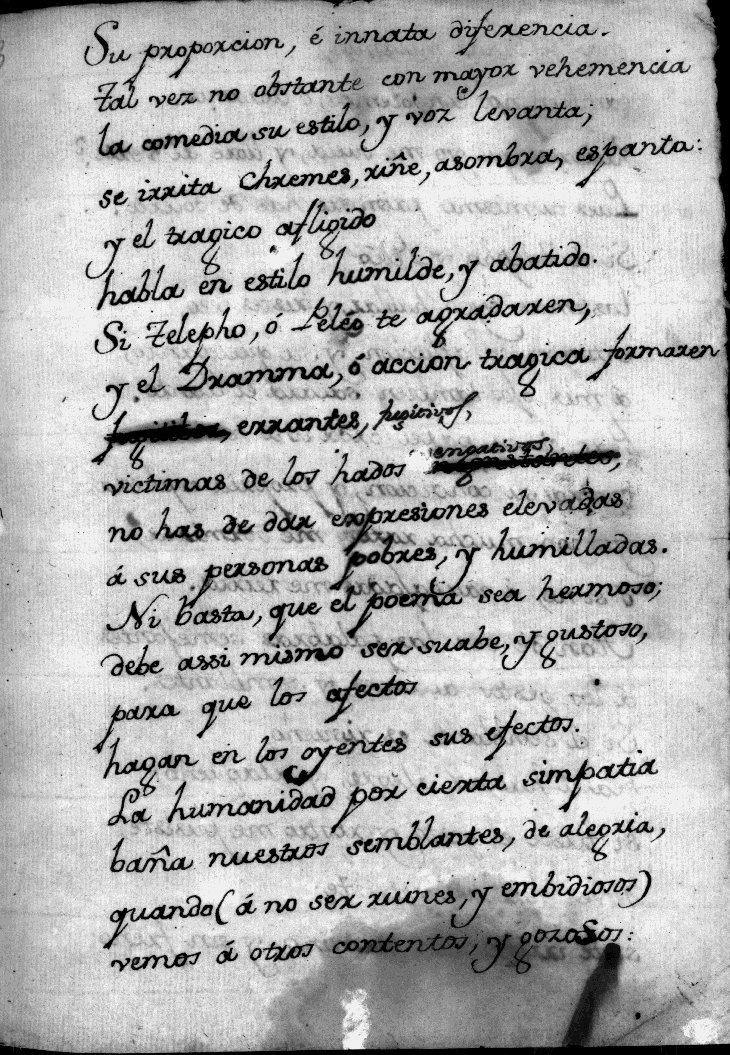 Su proporcion, é innata diferencia.
Tal vez no obstante con mayor vehemencia
la comedia su estilo, y voz levanta;
se irrita Chremes, riñe, asombra, espanta:
y el tragico afligido
habla en estilo humilde, y abatido.
Si Telepho, ó Peléo te agradaren,
y el Dramma, ó acción tragica formaren
errantes, fugitivos,
victimas de los hados
no has de dar expresiones elevadas
á sus personas pobres, y humilladas.
Ni basta, que el poema sea hermoso;
debe assi mismo ser suabe, y gustoso,
para que los afectos
hagan en los oyentes sus efectos.
La humanidad por cierta simpatia
baña nuestros semblantes, de alegria,
quando (á no ser ruines, y embidiosos)
vemos á otros contentos, y gozosos: